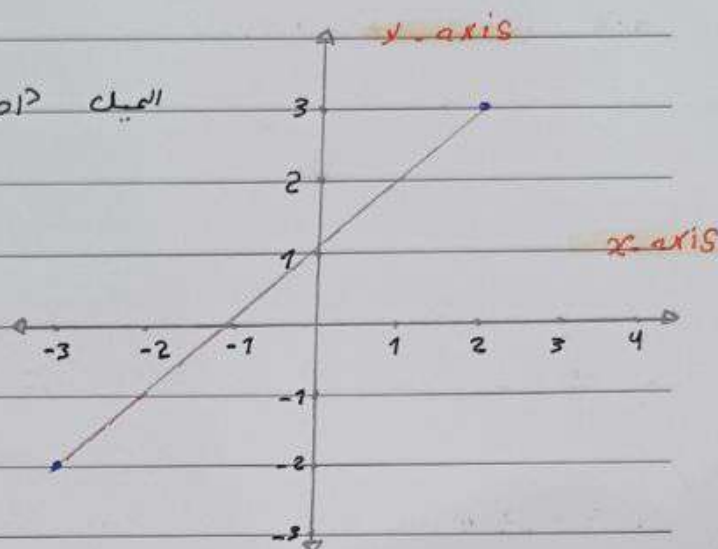 y-axis
الميل
3
2
1
x-axis
-3 -2 -1 1 2 3 4
-1
-2
-3